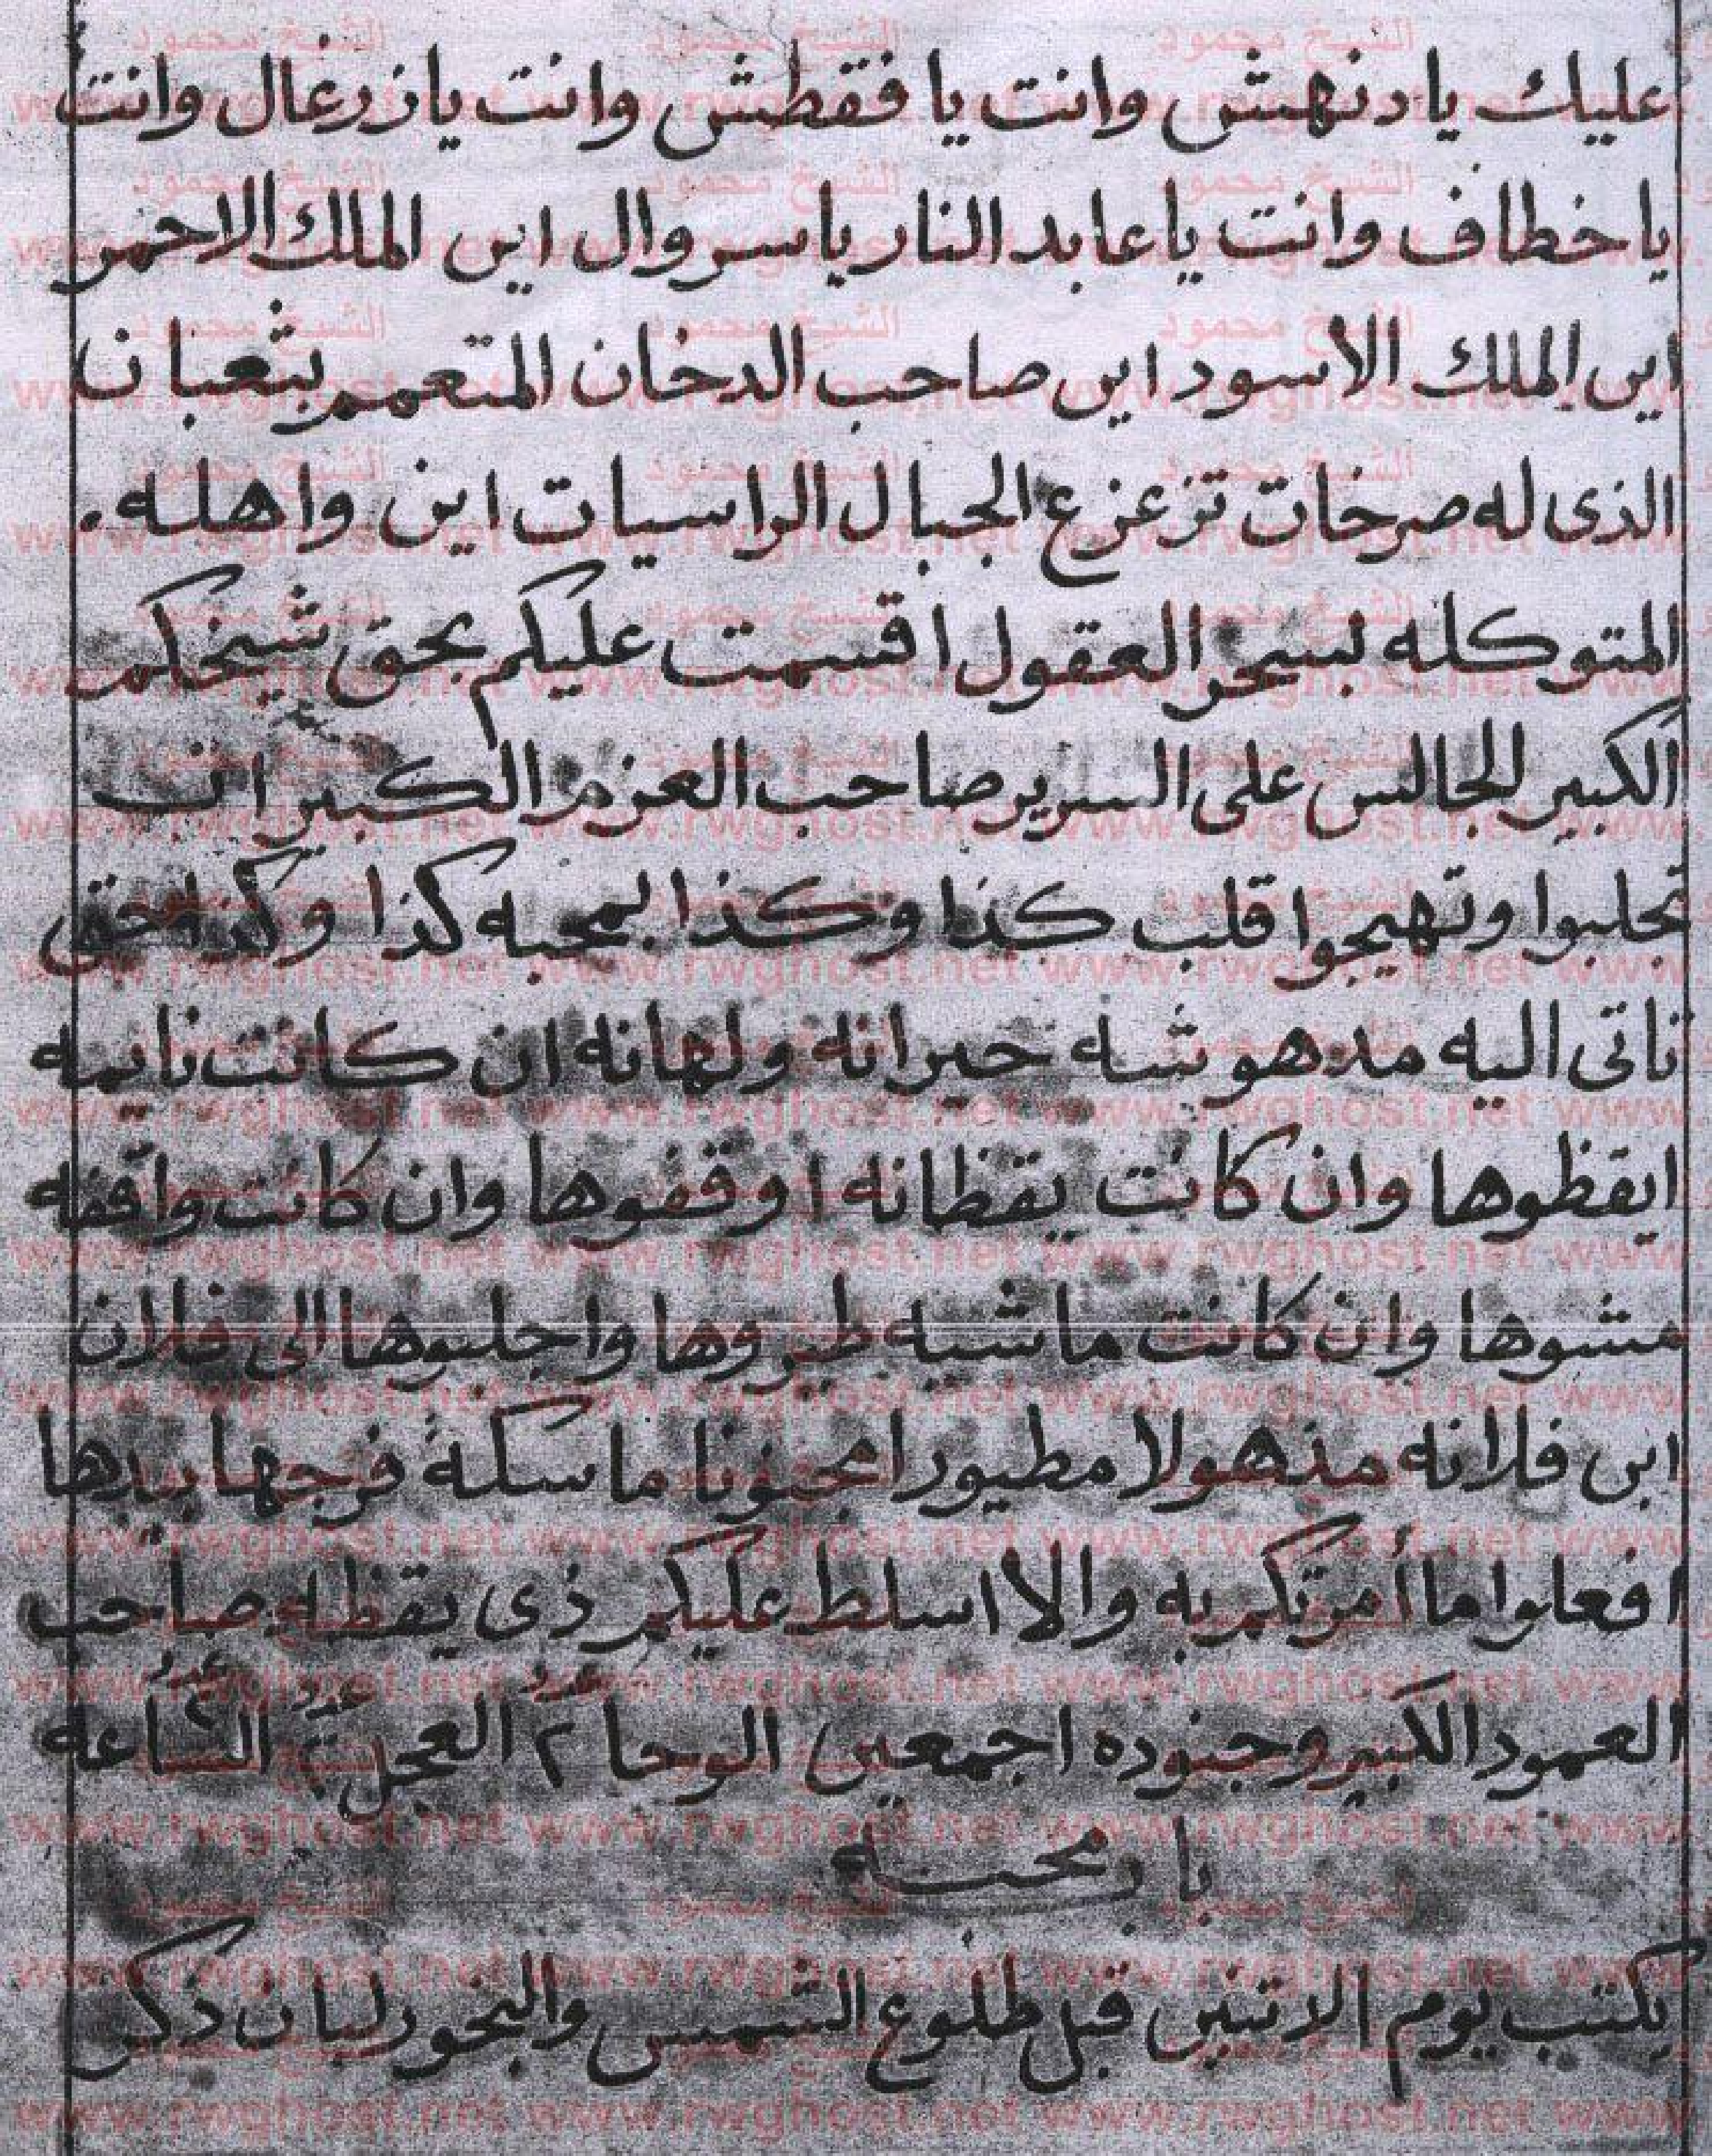 عليك يا دنهش وانت يا فقطش وانت يا زرغال وانت
يا خطاف وانت يا عابد النار يا سروال اين الملك الاحمر
اين الملك الأسود اين صاحب الدخان المتعمم بثعبان
الذى له صرخات تزعزع الجبال الراسيات اين واهله .
المتوكله لسحر العقول اقسمت عليكم بحق شيخكم
الكبير الجالس على السرير صاحب العزم الكبير ان
تجلبوا وتهيجوا قلب كذا وكذا بمحبه كذا وكذا حتى
تاتى اليه مدهوشه حيرانه ولهانه ان كانت نايمه
ايقظوها وان كانت يقظانه اوقفوها وان كانت واقفه
مشوها وان كانت ماشيه طيروها واجلبوها الى فلان
ابن فلانه مذهولا مطيورا مجنونا ماسكة فرجها بيدها
افعلوا ما أمرتكم به والا اسلط عليكم ذى يقظه صاحب
العمود الكبير وجنوده اجمعين الوحا ٢ العجل ٢ الساعه ٢
باب محبه
يكتب يوم الاتنين قبل طلوع الشمس والبخور لبان دكر
الشيخ محمود
www.rwghost.net